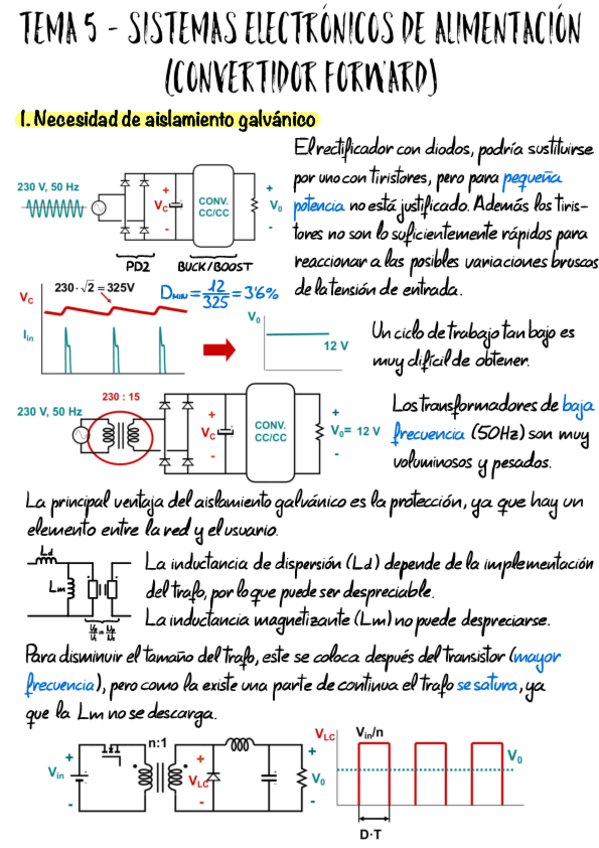 TEMA 5 - SISTEMAS ELECTRÓNICOS DE ALIMENTACIÓN
(CONVERTIDOR FORWARD)
1. Necesidad de aislamiento galvánico
El rectificador con diodos, podría sustituirse
por uno con tiristores, pero para pequeña
potencia no está justificado. Además los tiris-
tores no son lo suficientemente rápidos para
reaccionar a las posibles variaciones bruscas
de la tensión de entrada.
230 V, 50 Hz
+
Vc
-
CONV.
CC/CC
+
V₀
-
PD2
BUCK/BOOST
Vc
230·√2 = 325V
Iin
DMIN = 12/325 = 3'6%
V₀
12 V
Un ciclo de trabajo tan bajo es
muy difícil de obtener.
230 : 15
230 V, 50 Hz
+
Vc
-
CONV.
CC/CC
+
V₀= 12 V
-
Los transformadores de baja
frecuencia (50Hz) son muy
voluminosos y pesados.
La principal ventaja del aislamiento galvánico es la protección, ya que hay un
elemento entre la red y el usuario.
Ld
Lm
La inductancia de dispersión (Ld) depende de la implementación
del trafo, por lo que puede ser despreciable.
La inductancia magnetizante (Lm) no puede despreciarse.
Para disminuir el tamaño del trafo, este se coloca después del transistor (mayor
frecuencia), pero como la existe una parte de continua el trafo se satura, ya
que la Lm no se descarga.
n:1
+
Vin
-
+
VLC
-
+
V₀
-
VLC
Vin/n
V₀
D·T